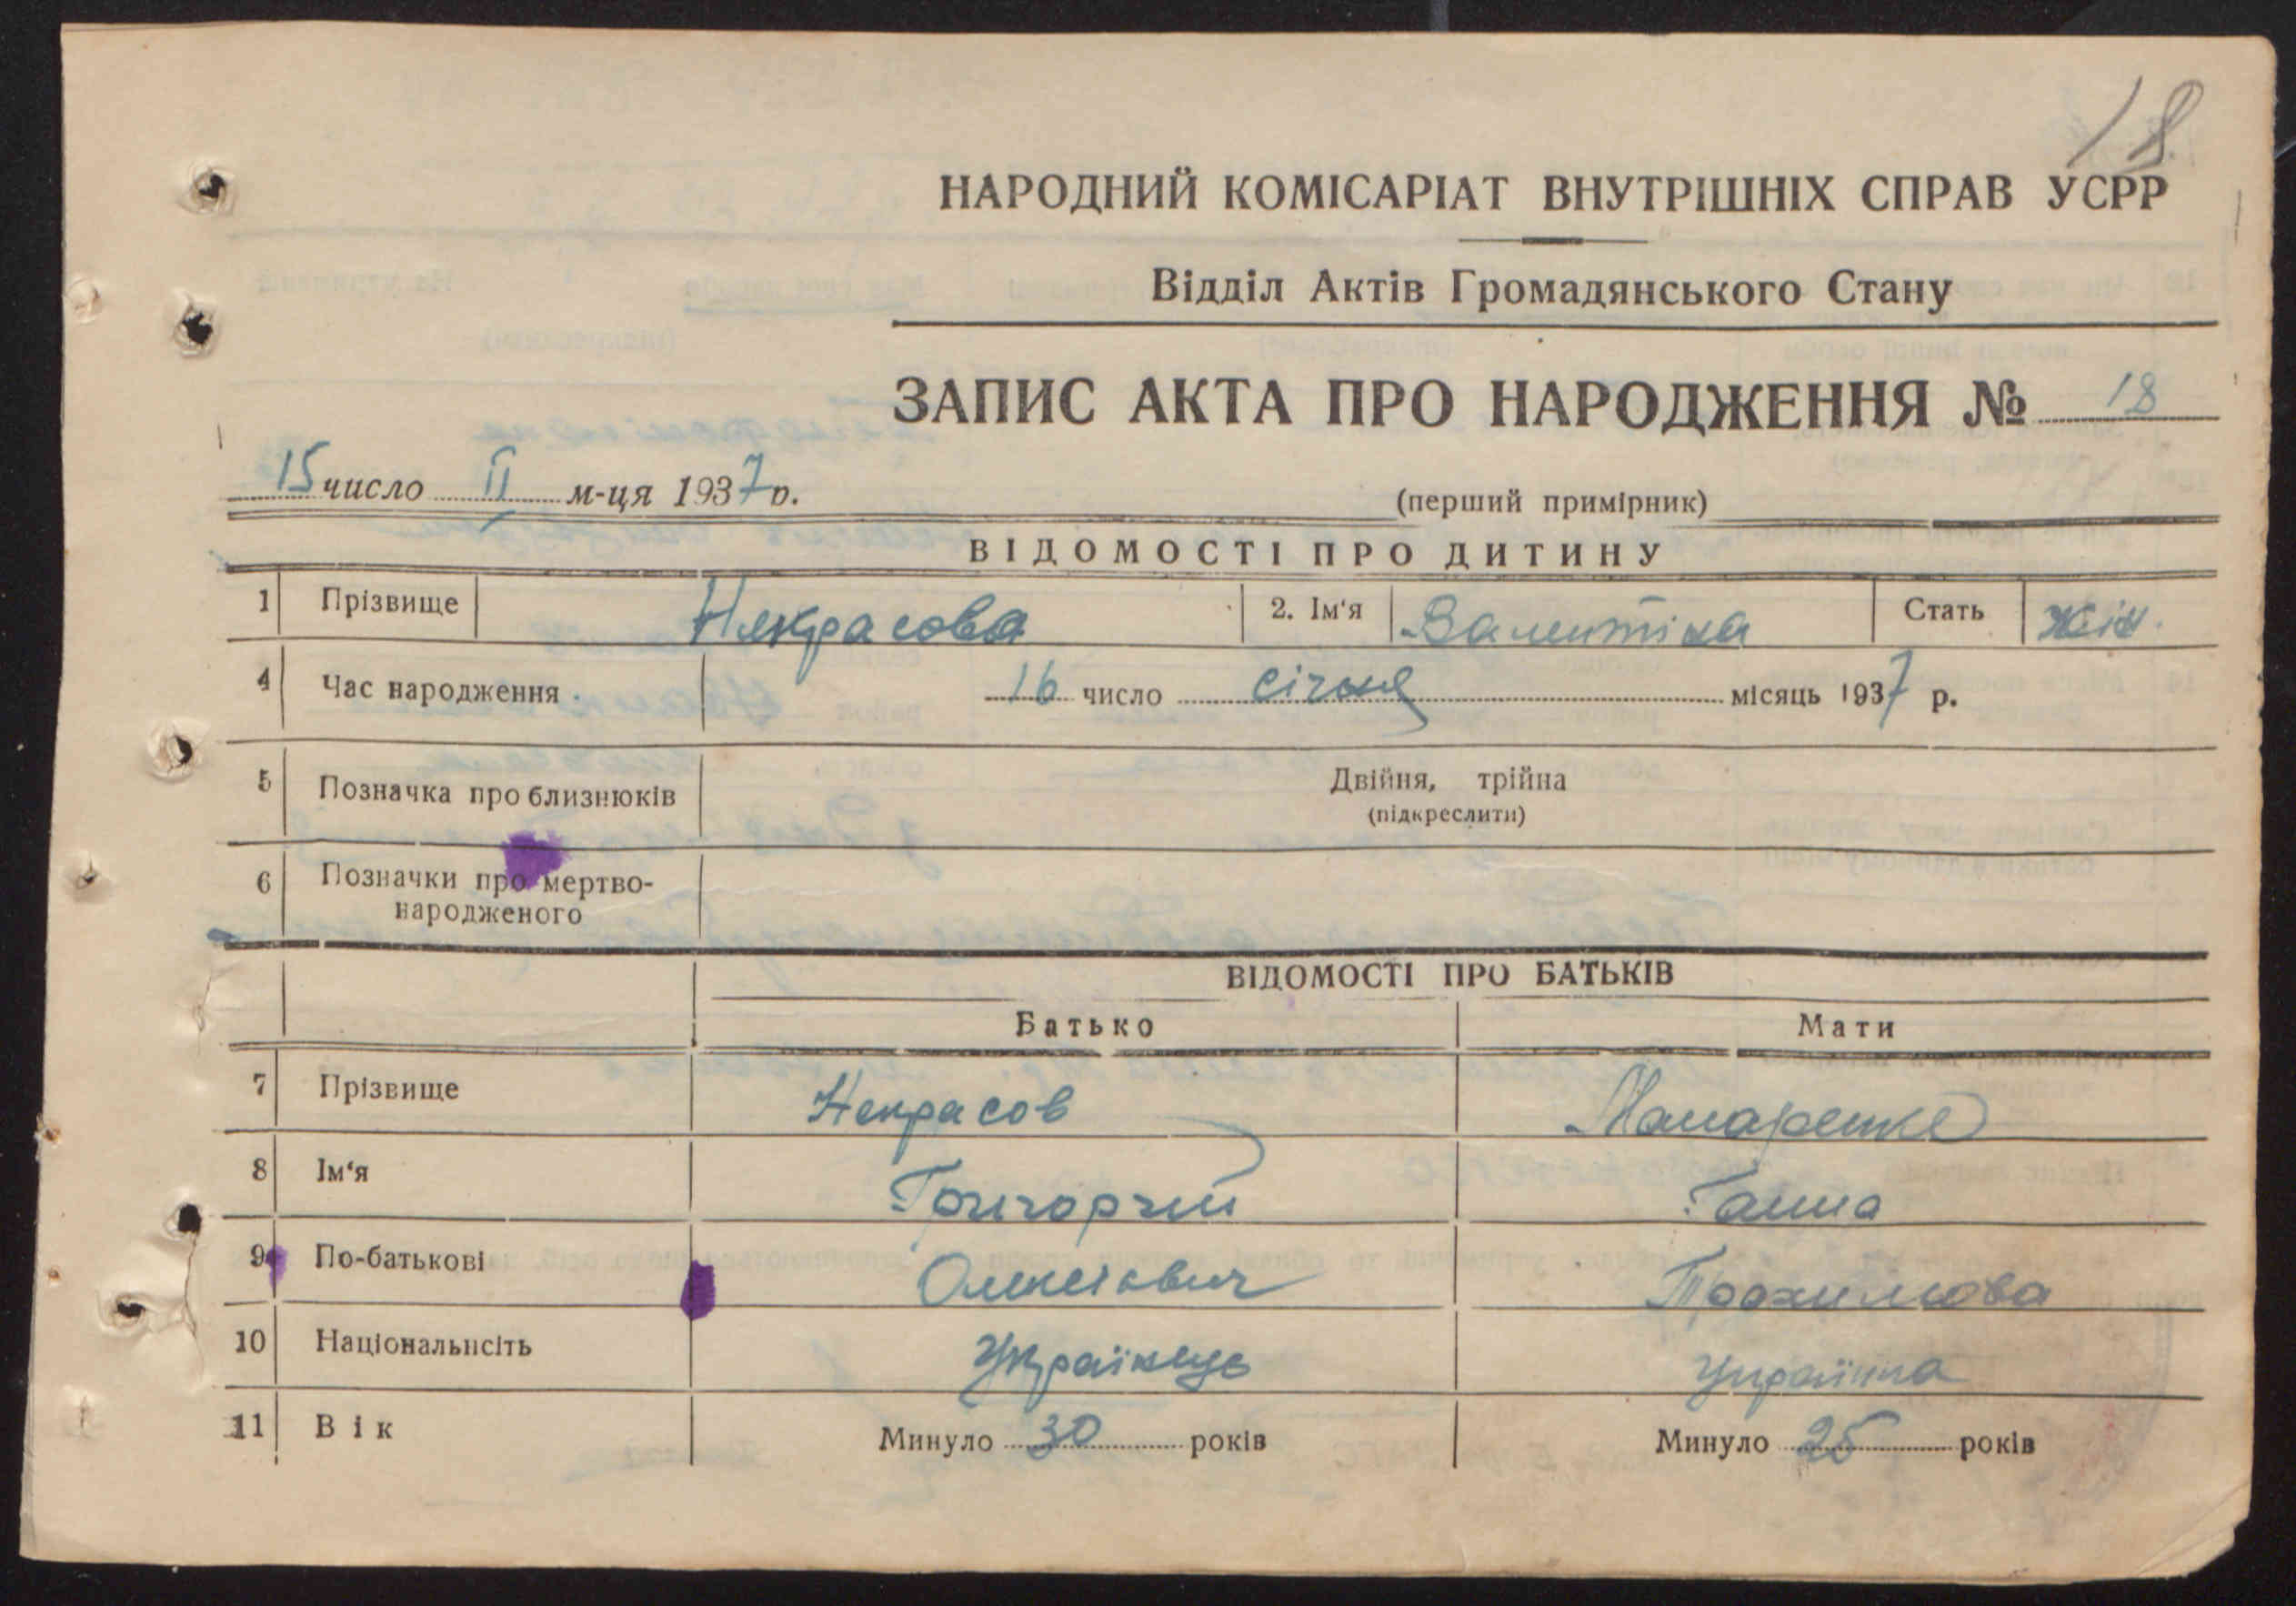 18
НАРОДНИЙ КОМІСАРІАТ ВНУТРІШНІХ СПРАВ УСРР
Відділ Актів Громадянського Стану
ЗАПИС АКТА ПРО НАРОДЖЕННЯ № 18
15 число II м-ця 1937 р.
(перший примірник)
ВІДОМОСТІ ПРО ДИТИНУ
1 Прізвище Некрасова 2. Ім'я Валентіна Стать жін.
4 Час народження 16 число січня місяць 1937 р.
5 Позначка про близнюків Двійня, трійна
(підкреслити)
6 Позначки про мертво-
народженого
ВІДОМОСТІ ПРО БАТЬКІВ
Батько Мати
7 Прізвище Некрасов
8 Ім'я Григорий Ганна
9 По-батькові Олексієвич Трохимовна
10 Національнсіть Українець Українка
11 Вік Минуло 30 років Минуло 25 років